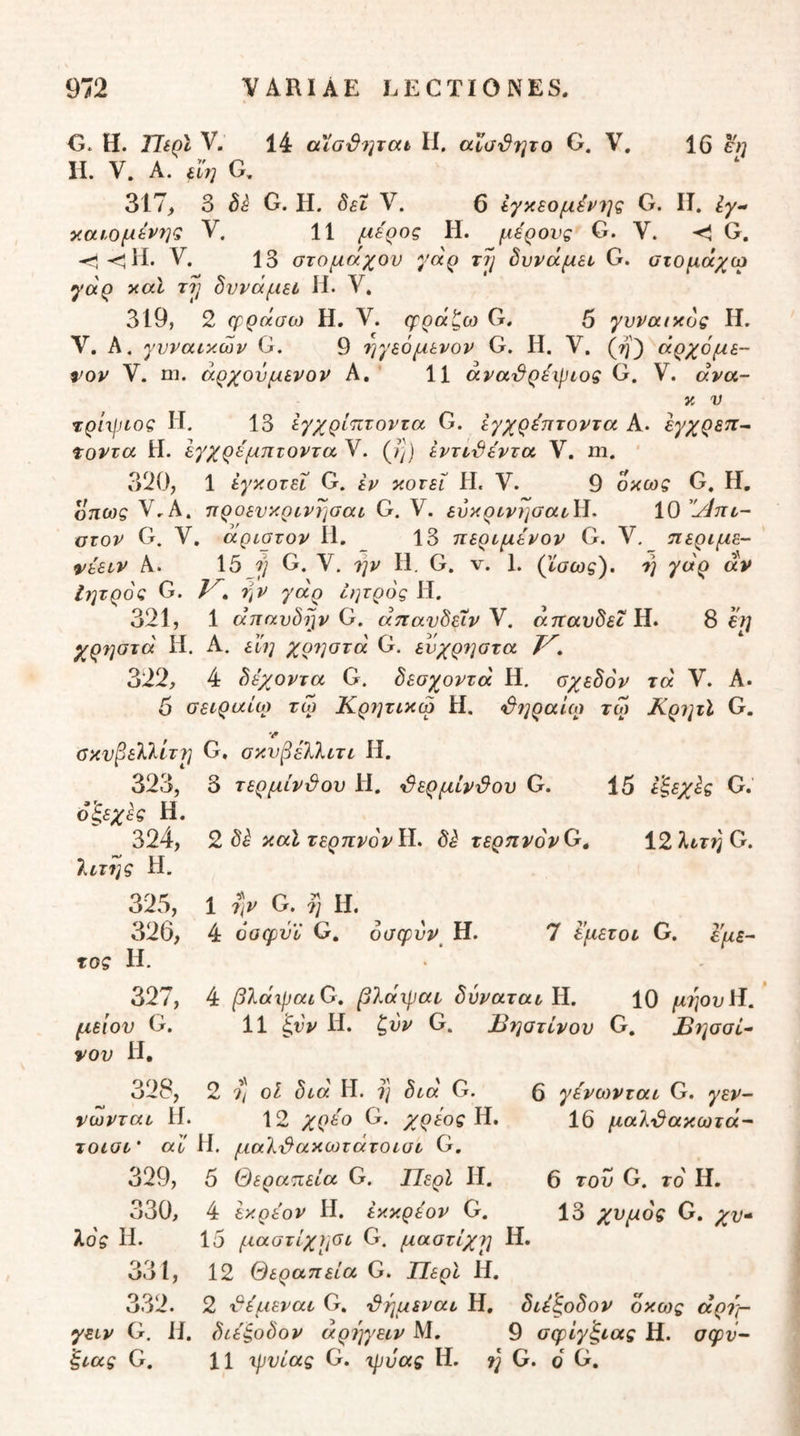 972 VARIAE LECTIONES.
G. H. Περὶ V. 14 αἴσθηται H. αἴσθητο G. V. 16 ἔῃ
H. V. A. εἴη G.
317, 3 δὲ G. H. δεῖ V. 6 ἐγκεομένης G. H. ἐγ-
καιομένης V. 11 μέρος H. μέρους G. V. ⊰ G.
⊰ ⊰ H. V. 13 στομάχου γὰρ τῇ δυνάμει G. στομάχῳ
γὰρ καὶ τῇ δυνάμει H. V.
319, 2 φράσω H. V. φράζω G. 5 γυναικὸς H.
V. A. γυναικῶν G. 9 ἡγεόμενον G. H. V. (ἢ) ἀρχόμε-
νον V. m. ἀρχούμενον A. 11 ἀναθρέψιος G. V. ἀνα-
τρίψιος H. 13 ἐγχρίπτοντα G. ἐγχρέπτοντα A. ἐγχρεπ-
κ υ
τοντα H. ἐγχρέμπτοντα V. (ἢ) ἐντιθέντα V. m.
320, 1 ἐγκοτεῖ G. ἐν κοτεῖ H. V. 9 ὅκως G. H.
ὅπως V. A. προευκρινῆσαι G. V. εὐκρινῆσαι H. 10 Ἄπι-
στον G. V. ἄριστον H. 13 περιμένον G. V. περιμε-
νέειν A. 15 ῇ G. V. ἦν H. G. v. l. (ἴσως). ῇ γὰρ ἂν
ἰητρὸς G. V. ἦν γὰρ ἰητρὸς H.
321, 1 ἀπαυδῆν G. ἀπαυδεῖν V. ἀπαυδεῖ H. 8 ἔῃ
χρηστὰ H. A. εἴη χρηστὰ G. εὔχρηστα V.
322, 4 δέχοντα G. δεσχοντά H. σχεδὸν τὰ V. A.
5 σειραίῳ τῷ Κρητικῷ H. θηραίῳ τῷ Κρητὶ G.
σκυβελλίτῃ G. σκυβέλλιτι H.
323, 3 τερμίνθου H. θερμίνθου G. 15 ἐξεχὲς G.
ὀξεχὲς H.
324, 2 δὲ καὶ τερπνὸν H. δὲ τερπνὸν G. 12 λιτὴ G.
λιτῆς H.
325, 1 ἢν G. ἢ H.
326, 4 ὀσφύϊ G. ὀσφὺν H. 7 ἔμετοι G. ἔμε-
τος H.
327, 4 βλάψαι G. βλάψαι δύναται H. 10 μήου H.
μείου G. 11 ξὺν H. ζὺν G. Βηστίνου G. Βησσί-
νου H.
328, 2 ἢ οἱ διὰ H. ἢ διὰ G. 6 γένωνται G. γεν-
νῶνται H. 12 χρέο G. χρέος H. 16 μαλθακωτά-
τοισι· αἱ H. μαλθακωτάτοισι G.
329, 5 Θεραπεία G. Περὶ H. 6 τοῦ G. τὸ H.
330, 4 ἐκρέον H. ἐκκρέον G. 13 χυμὸς G. χυ-
λὸς H. 15 μαστίχῃσι G. μαστίχῃ H.
331, 12 Θεραπεία G. Περὶ H.
332. 2 θέμεναι G. θήμεναι H. διέξοδον ὅκως ἀρή-
γειν G. H. διέξοδον ἀρήγειν M. 9 σφίγξιας H. σφύ-
ξιας G. 11 ψυίας G. ψύας H. ἢ G. ὁ G.